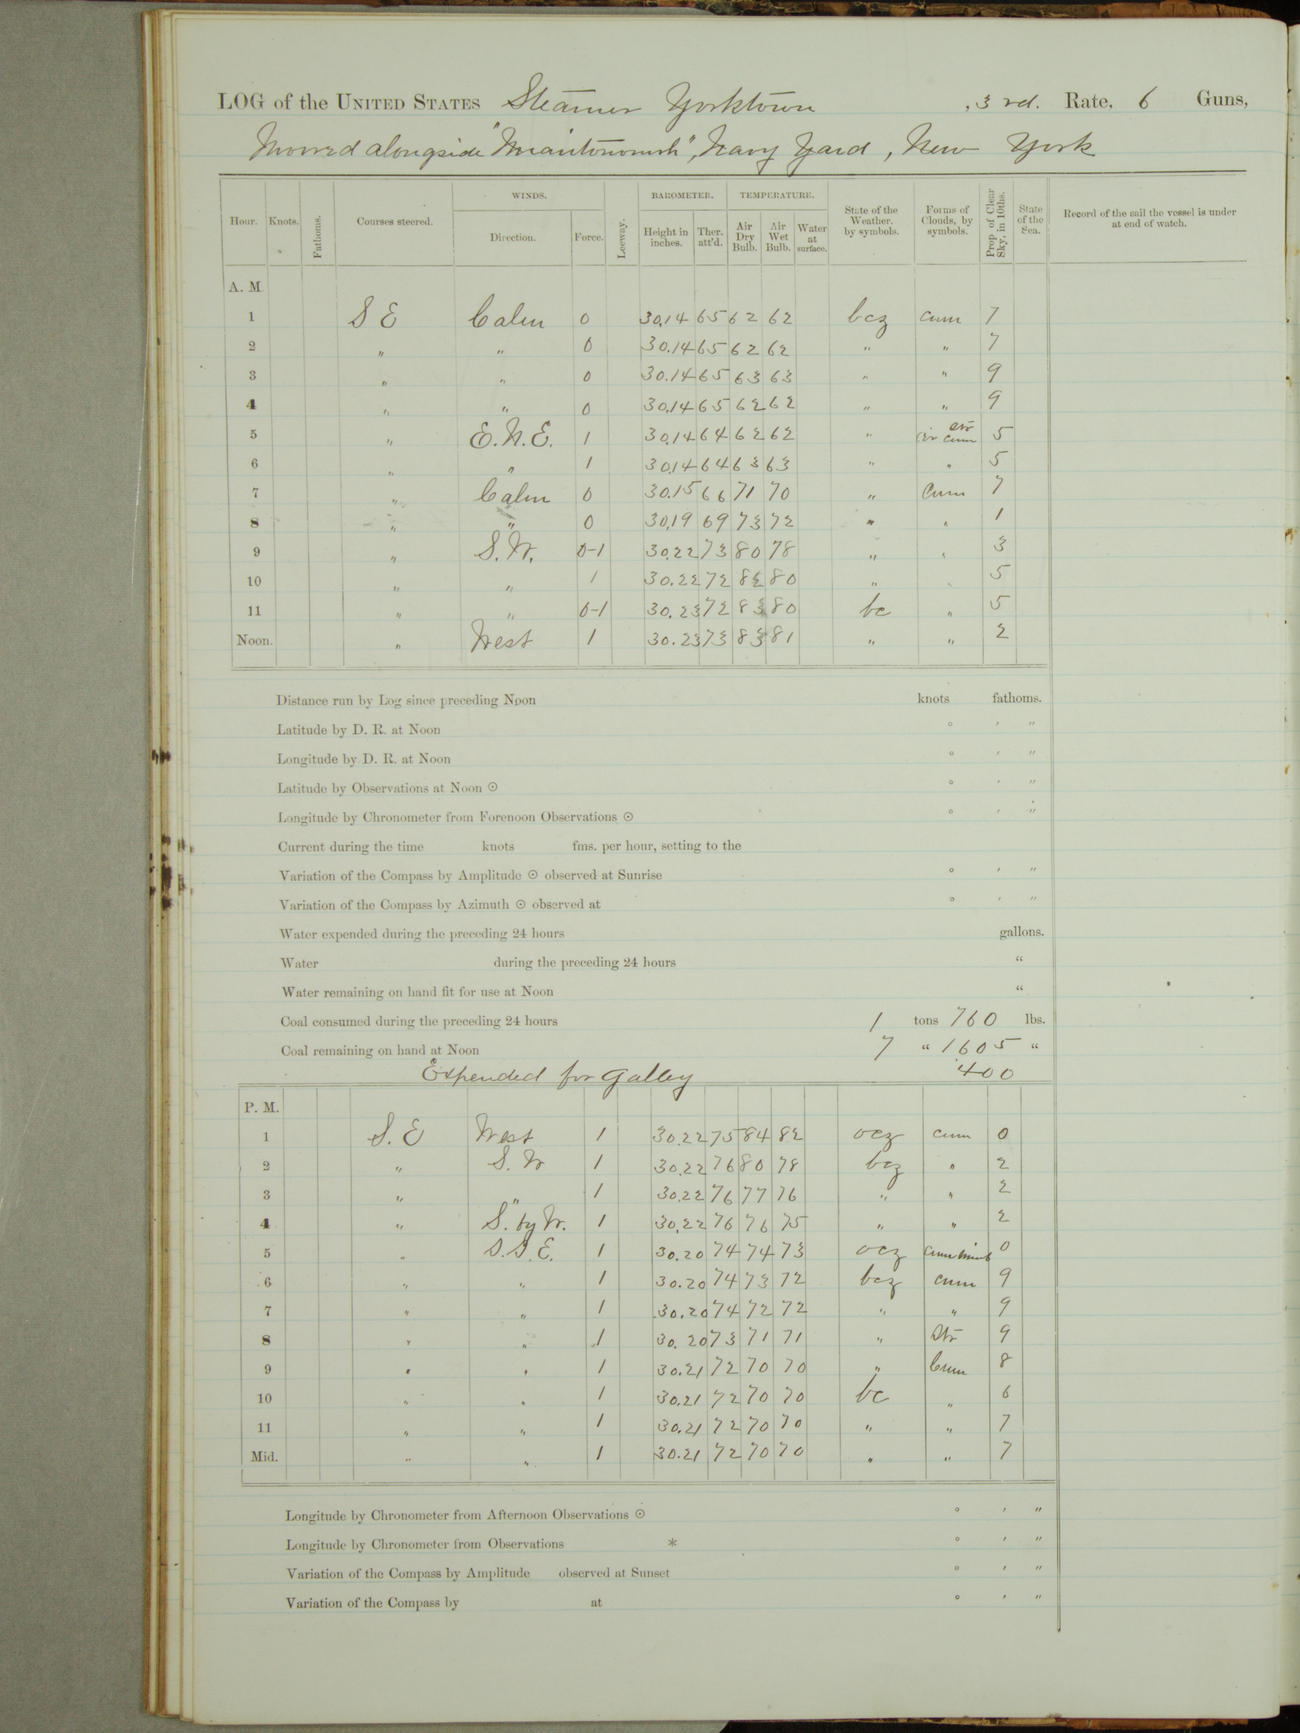 LOG of the UNITED STATES Steamer Yorktown , 3rd. Rate, 6 Guns,
Moored alongside "Miantonomoh", Navy Yard, New York
Hour. Knots. Fathoms. Courses steered. WINDS. Direction. Force. Leeway. BAROMETER. Height in inches. Ther. att'd. TEMPERATURE. Air Dry Bulb. Air Wet Bulb. Water at surface. State of the Weather. by symbols. Forms of Clouds, by symbols. Prop. of Clear Sky, in 10ths. State of the Sea. Record of the sail the vessel is under at end of watch.
A. M.
1 S E Calm 0 30.14 65 62 62 bcz cum 7
2 " " 0 30.14 65 62 62 " " 7
3 " " 0 30.14 65 63 63 " " 9
4 " " 0 30.14 65 62 62 " " 9
5 " E.N.E. 1 30.14 64 62 62 " cir str cum 5
6 " " 1 30.14 64 63 63 " " 5
7 " Calm 0 30.15 66 71 70 " Cum 7
8 " " 0 30.19 69 73 72 " " 1
9 " S.W. 0-1 30.22 73 80 78 " " 3
10 " " 1 30.22 72 82 80 " " 5
11 " " 0-1 30.23 72 83 80 bc " 5
Noon. " West 1 30.23 73 83 81 " " 2
Distance run by Log since preceding Noon knots fathoms.
Latitude by D. R. at Noon ° ' "
Longitude by D. R. at Noon ° ' "
Latitude by Observations at Noon ☉ ° ' "
Longitude by Chronometer from Forenoon Observations ☉ ° ' "
Current during the time knots fms. per hour, setting to the
Variation of the Compass by Amplitude ☉ observed at Sunrise ° ' "
Variation of the Compass by Azimuth ☉ observed at ° ' "
Water expended during the preceding 24 hours gallons.
Water during the preceding 24 hours "
Water remaining on hand fit for use at Noon "
Coal consumed during the preceding 24 hours 1 tons 760 lbs.
Coal remaining on hand at Noon 7 " 1605 "
Expended for Galley 400
P. M.
1 S. E West 1 30.22 75 84 82 ocz cum 0
2 " S. W 1 30.22 76 80 78 bcz " 2
3 " " 1 30.22 76 77 76 " " 2
4 " S. by W. 1 30.22 76 76 75 " " 2
5 " S.S.E. 1 30.20 74 74 73 ocz cum nimb 0
6 " " 1 30.20 74 73 72 bcz cum 9
7 " " 1 30.20 74 72 72 " " 9
8 " " 1 30.20 73 71 71 " Str 9
9 " " 1 30.21 72 70 70 " Cum 8
10 " " 1 30.21 72 70 70 bc " 6
11 " " 1 30.21 72 70 70 " " 7
Mid. " " 1 30.21 72 70 70 " " 7
Longitude by Chronometer from Afternoon Observations ☉ ° ' "
Longitude by Chronometer from Observations * ° ' "
Variation of the Compass by Amplitude observed at Sunset ° ' "
Variation of the Compass by at ° ' "